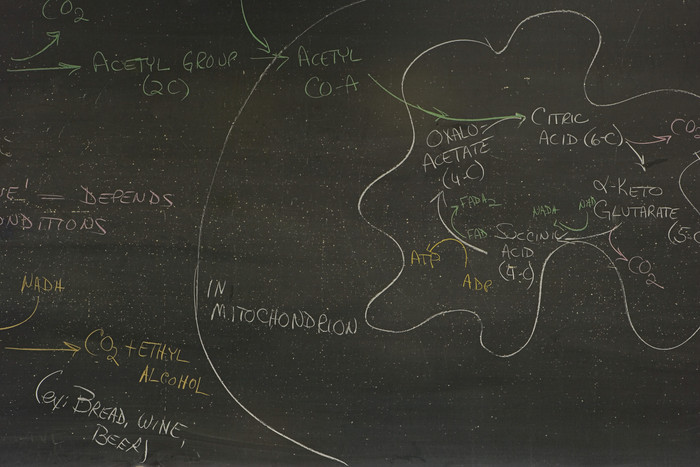 CO2
ACETYL GROUP
(2C)
ACETYL
CO-A
CITRIC
ACID (6-C)
CO2
OXALO-
ACETATE
(4-C)
α-KETO
GLUTARATE
(5-C)
CO2
NAD
NADH
FADH2
FAD
SUCCINIC
ACID
(4-C)
ATP
ADP
= DEPENDS
IN
MITOCHONDRION
NADH
CO2 + ETHYL
ALCOHOL
(ex: BREAD, WINE,
BEER)